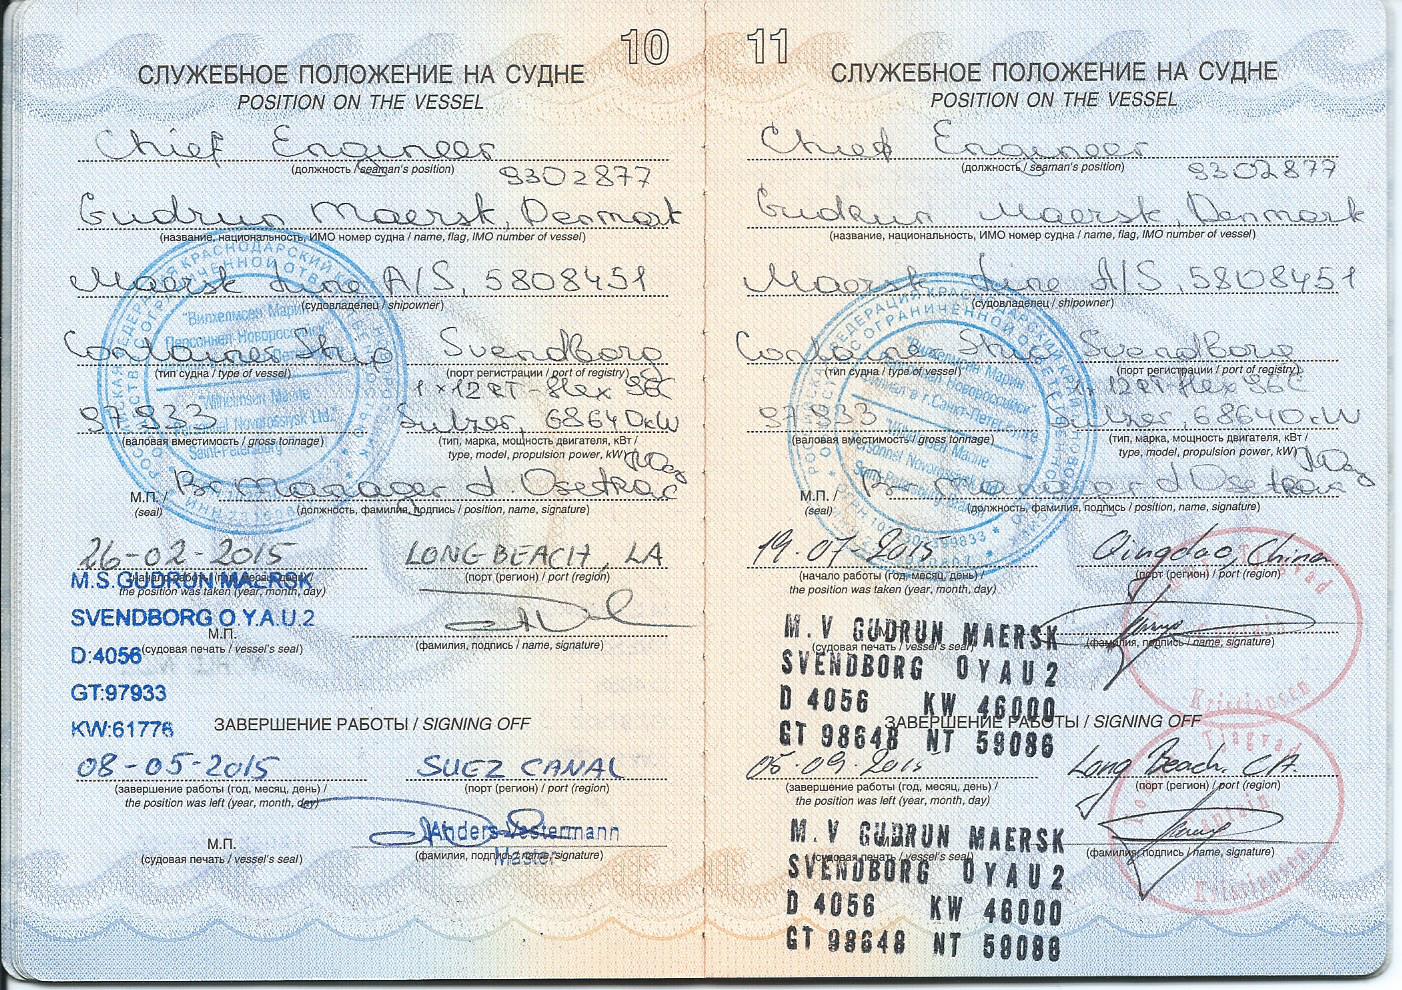 10
СЛУЖЕБНОЕ ПОЛОЖЕНИЕ НА СУДНЕ
POSITION ON THE VESSEL
Chief Engineer
(должность / seaman's position)
9302877
Gudrun Maersk, Denmark
(название, национальность, ИМО номер судна / name, flag, IMO number of vessel)
Maersk Line A/S, 5808451
(судовладелец / shipowner)
Container Ship Svendborg
(тип судна / type of vessel) (порт регистрации / port of registry)
1 x 12RT-flex 96C
97933 Sulzer, 68640kW
(валовая вместимость / gross tonnage) (тип, марка, мощность двигателя, кВт /
type, model, propulsion power, kW)
Manager d. Osetrov
М.П. / (должность, фамилия, подпись / position, name, signature)
(seal)
"Вилхелмсен Марин
Персоннел Новороссийск"
"Wilhelmsen Marine
Personnel Novorossiysk Ltd."
Saint-Petersburg
26-02-2015 LONG BEACH, LA
(начало работы (год, месяц, день) / (порт (регион) / port (region)
the position was taken (year, month, day)
M.S.GUDRUN MAERSK
SVENDBORG O.Y.A.U.2
D:4056
GT:97933
KW:61776
М.П.
(судовая печать / vessel's seal) (фамилия, подпись / name, signature)
ЗАВЕРШЕНИЕ РАБОТЫ / SIGNING OFF
08-05-2015 SUEZ CANAL
(завершение работы (год, месяц, день) / (порт (регион) / port (region)
the position was left (year, month, day)
Anders Vestermann
Master
М.П.
(судовая печать / vessel's seal) (фамилия, подпись / name, signature)
11
СЛУЖЕБНОЕ ПОЛОЖЕНИЕ НА СУДНЕ
POSITION ON THE VESSEL
Chief Engineer
(должность / seaman's position)
9302877
Gudrun Maersk, Denmark
(название, национальность, ИМО номер судна / name, flag, IMO number of vessel)
Maersk Line A/S, 5808451
(судовладелец / shipowner)
Container Ship Svendborg
(тип судна / type of vessel) (порт регистрации / port of registry)
1x 12RT-flex 96C
97933 Sulzer, 68640kW
(валовая вместимость / gross tonnage) (тип, марка, мощность двигателя, кВт /
type, model, propulsion power, kW)
Manager d Osetrov
М.П. / (должность, фамилия, подпись / position, name, signature)
(seal)
19-07-2015 Qingdao, China
(начало работы (год, месяц, день) / (порт (регион) / port (region)
the position was taken (year, month, day)
M.V GUDRUN MAERSK
SVENDBORG OYAU2
D 4056 KW 46000
GT 98648 NT 59086
(судовая печать / vessel's seal) (фамилия, подпись / name, signature)
Kristiansen
ЗАВЕРШЕНИЕ РАБОТЫ / SIGNING OFF
05-09-2015 Long Beach, CA.
(завершение работы (год, месяц, день) / (порт (регион) / port (region)
the position was left (year, month, day)
M.V GUDRUN MAERSK
SVENDBORG OYAU2
D 4056 KW 46000
GT 98648 NT 59086
(судовая печать / vessel's seal) (фамилия, подпись / name, signature)
Captain
Kristiansen